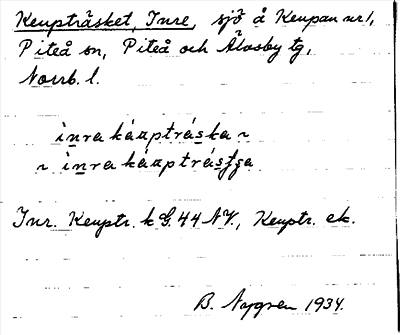 Keupträsket, Inre, sjö å Keupan nr 1,
Piteå sn, Piteå och Älvsby tg,
Norrb. l.
ìnra káaptráska ~
~ ìnra káaptrásʃga
Inr. Keuptr. k G. 44 NV., Keuptr. ek.
B. Nygren 1934.